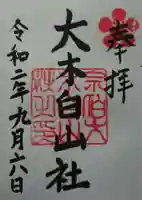 奉拝
大本白山社
令和二年九月六日